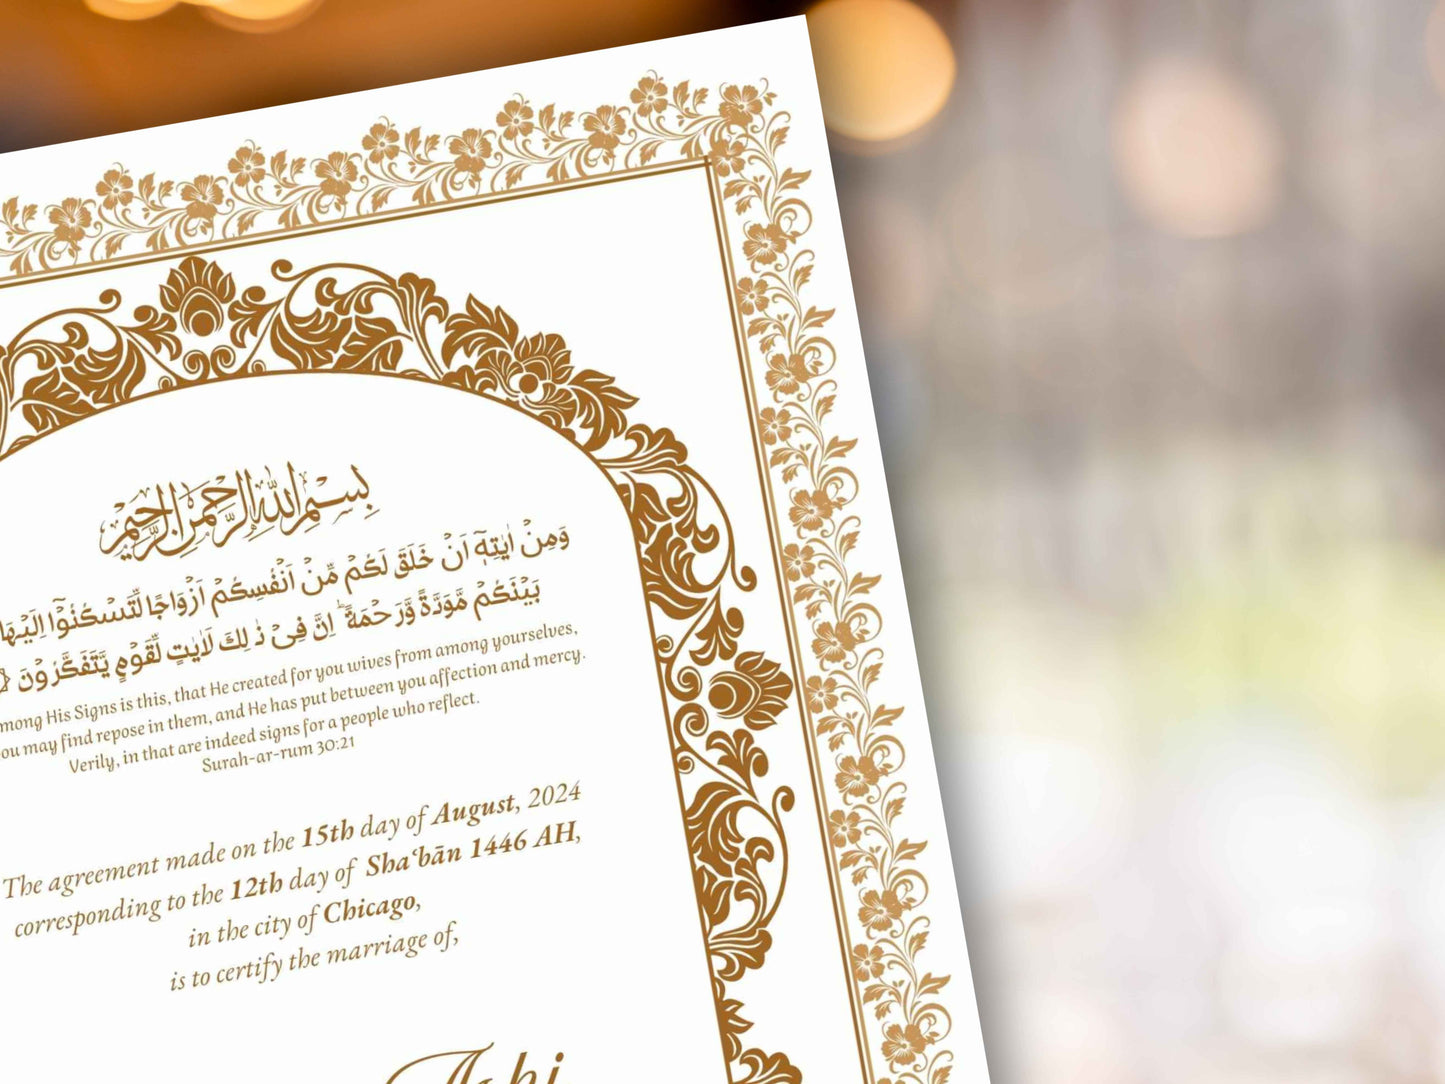 بِسْمِ اللهِ الرَّحْمٰنِ الرَّحِيْمِ
وَمِنْ اٰيٰتِهٖٓ اَنْ خَلَقَ لَكُمْ مِّنْ اَنْفُسِكُمْ اَزْوَاجًا لِّتَسْكُنُوْٓا اِلَيْهَا
بَيْنَكُمْ مَّوَدَّةً وَّرَحْمَةً ؕ اِنَّ فِىْ ذٰ لِكَ لَاٰيٰتٍ لِّقَوْمٍ يَّتَفَكَّرُوْنَ
mong His Signs is this, that He created for you wives from among yourselves,
ou may find repose in them, and He has put between you affection and mercy.
Verily, in that are indeed signs for a people who reflect.
Surah-ar-rum 30:21
The agreement made on the 15th day of August, 2024
corresponding to the 12th day of Shaʿbān 1446 AH,
in the city of Chicago,
is to certify the marriage of,